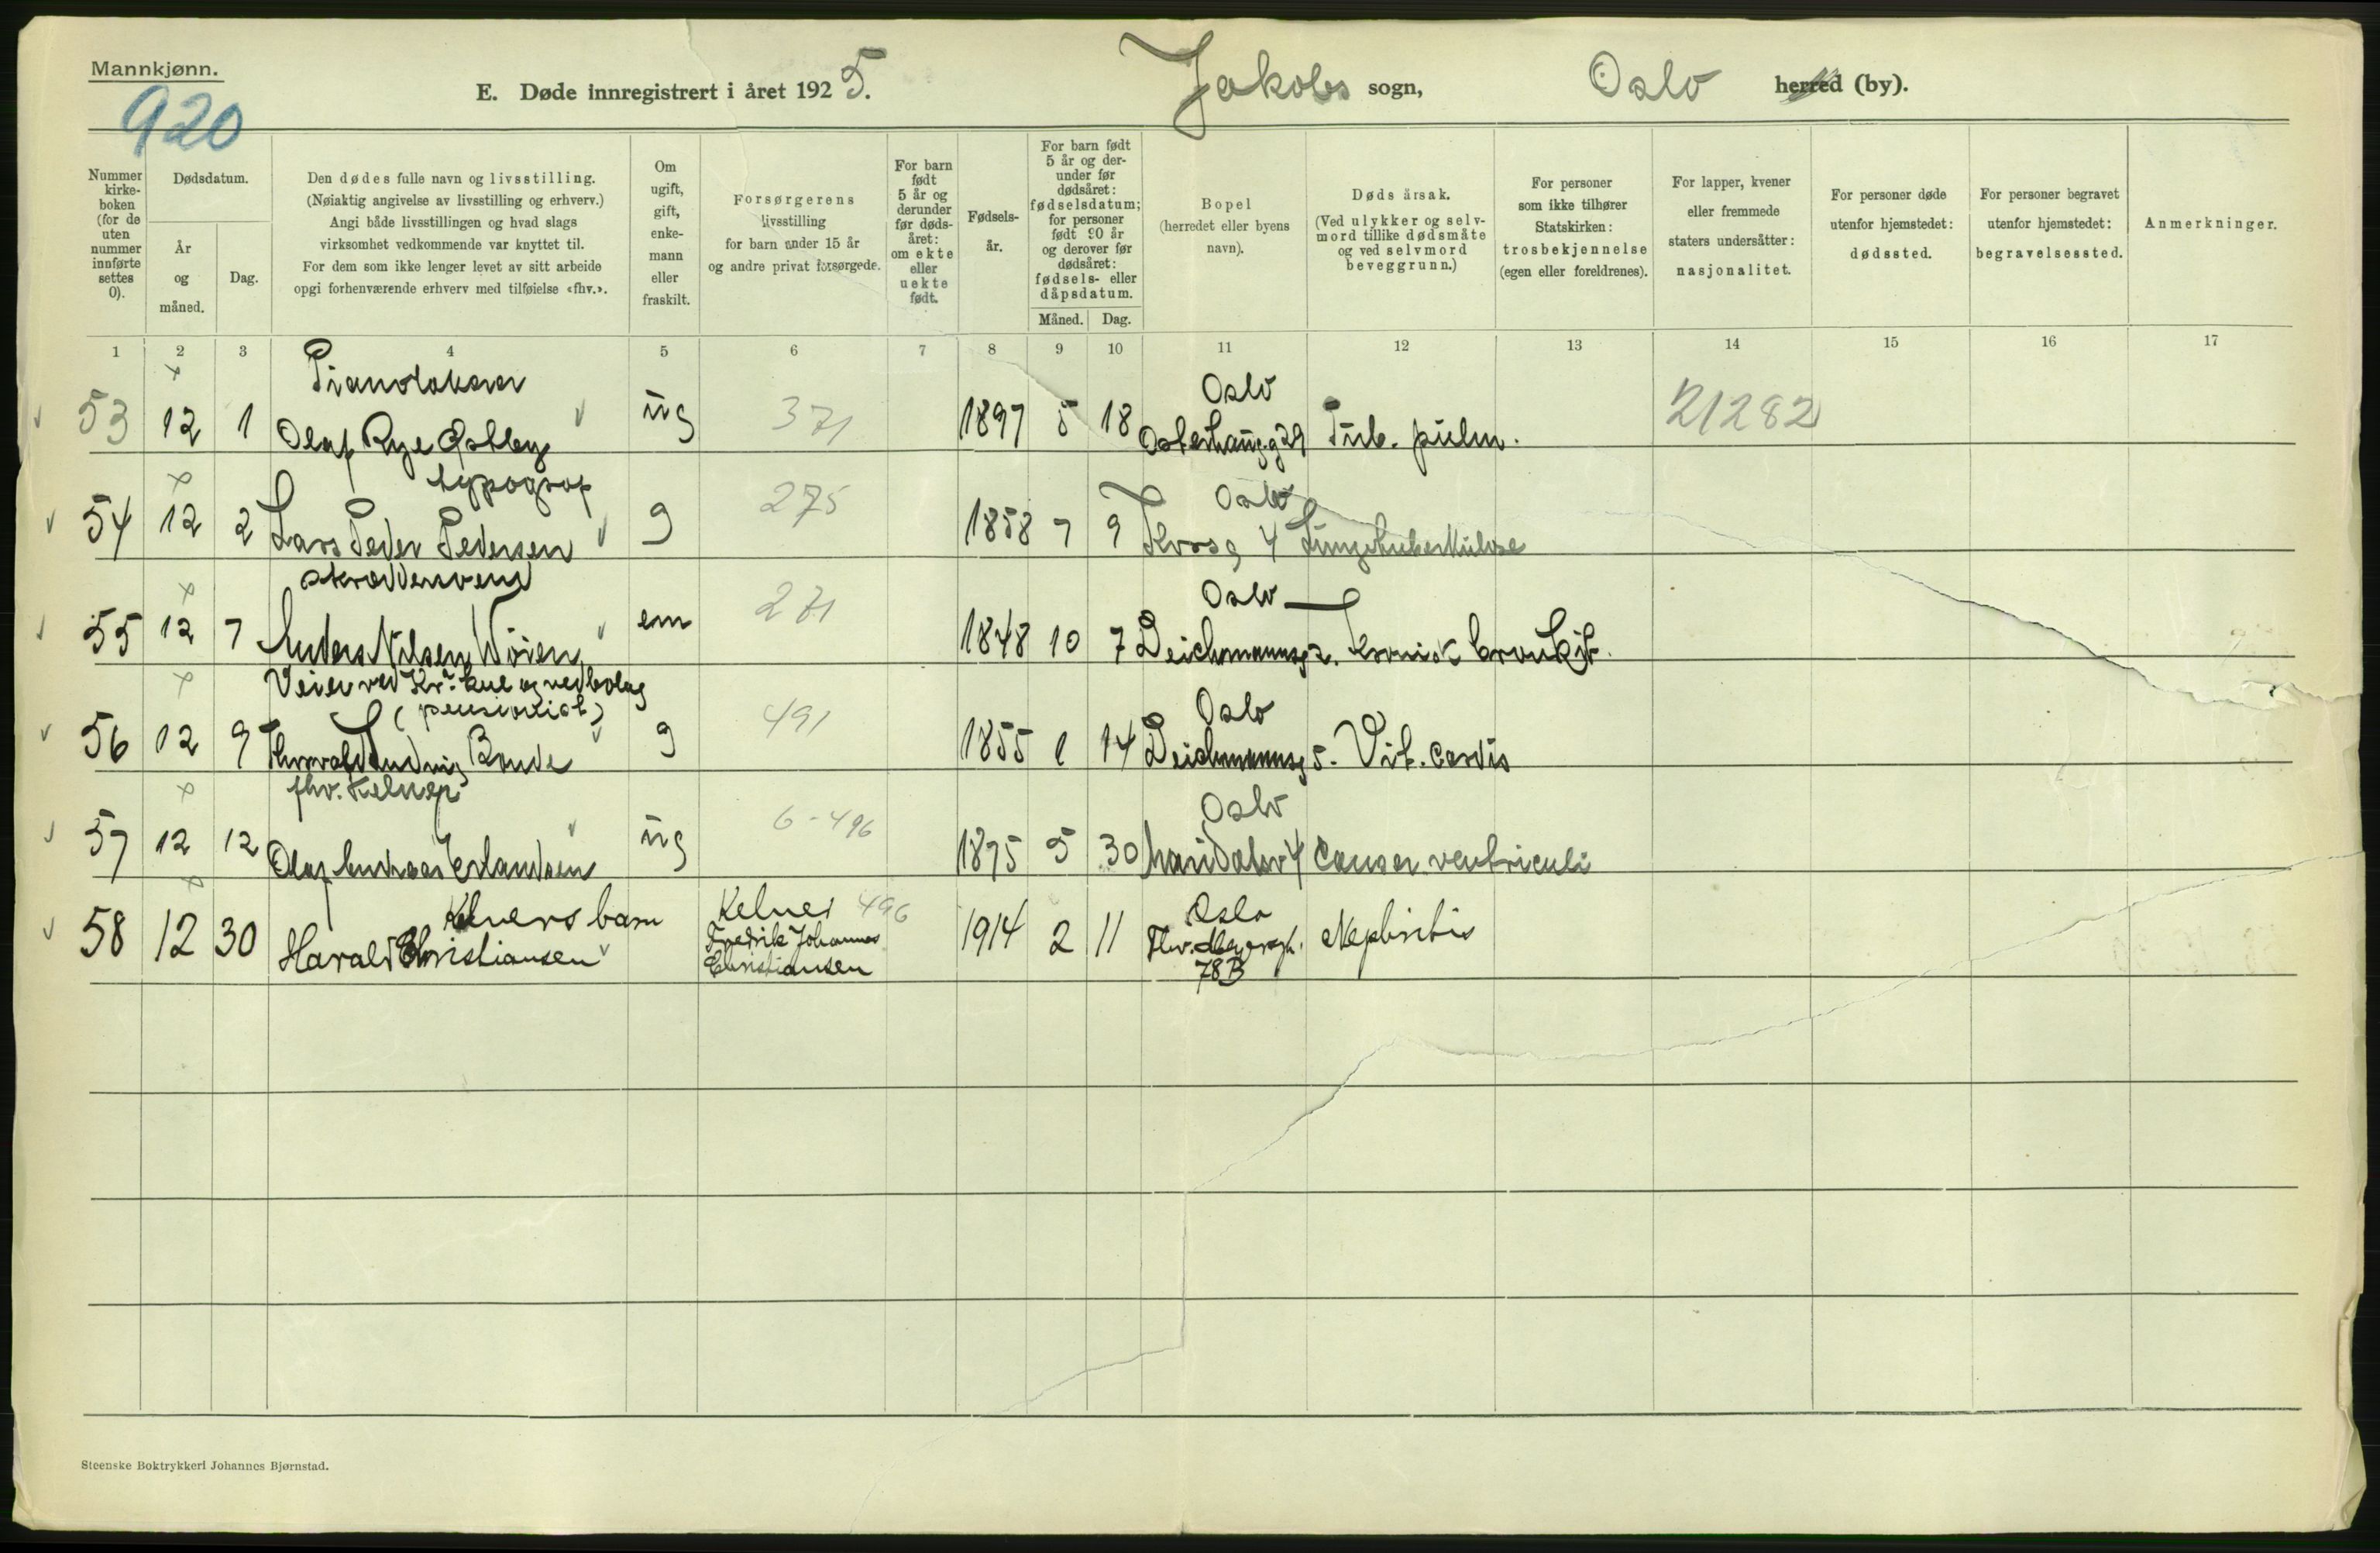 Mannkjønn.
920
E. Døde innregistrert i året 1925. Jakobs sogn, Oslo herred (by).
Nummer kirke-boken (for de uten nummer innførte settes 0).
Dødsdatum.
År og måned.
Dag.
Den dødes fulle navn og livsstilling.
(Nøiaktig angivelse av livsstilling og erhverv.)
Angi både livsstillingen og hvad slags
virksomhet vedkommende var knyttet til.
For dem som ikke lenger levet av sitt arbeide
opgi forhenværende erhverv med tilføielse «fhv.».
Om ugift, gift, enke-mann eller fraskilt.
Forsørgerens
livsstilling
for barn under 15 år
og andre privat forsørgede.
For barn født 5 år og derunder før døds-året: om ekte eller uekte født.
Fødsels-år.
For barn født 5 år og der-under før dødsåret: fødselsdatum; for personer født 90 år og derover før dødsåret: fødsels- eller dåpsdatum.
Måned. Dag.
Bopel
(herredet eller byens navn).
Dødsårsak.
(Ved ulykker og selv-mord tillike dødsmåte og ved selvmord beveggrunn.)
For personer som ikke tilhører Statskirken: trosbekjennelse (egen eller foreldrenes).
For lapper, kvener eller fremmede staters undersåtter: nasjonalitet.
For personer døde utenfor hjemstedet: dødssted.
For personer begravet utenfor hjemstedet: begravelsessted.
Anmerkninger.
1 2 3 4 5 6 7 8 9 10 11 12 13 14 15 16 17
Oslo
53 12 1 Olaf Rye Østby ug 371 1897 5 18 Osterhausg 29 Tub. pulm. 21282
typograf Oslo
54 12 2 Lars Peder Pedersen g 275 1858 7 9 Korsg 4 Lungetuberkulose
skreddersvend Oslo
55 12 7 Anders Nilsen Wöien em 271 1848 10 7 Deichmannsg 2. Kronisk bronkit.
Veier ved Kr.a kul og vedbolag
(pensionist) Oslo
56 12 9 Thorvald Ludvig Bonde g 491 1855 1 14 Deichmannsg 5. Vit. cordis
fhv. Kelner Oslo
57 12 12 Olaf Andreas Erlandsen ug 6-496 1875 5 30 Maridalsv 4 Cancer ventriculi
Kelners barn Kelner 496 Oslo
58 12 30 Harald Christiansen Fredrik Johannes 1914 2 11 Thv. Meyersgt. Nephritis
Christiansen 78B
Steenske Boktrykkeri Johannes Bjørnstad.